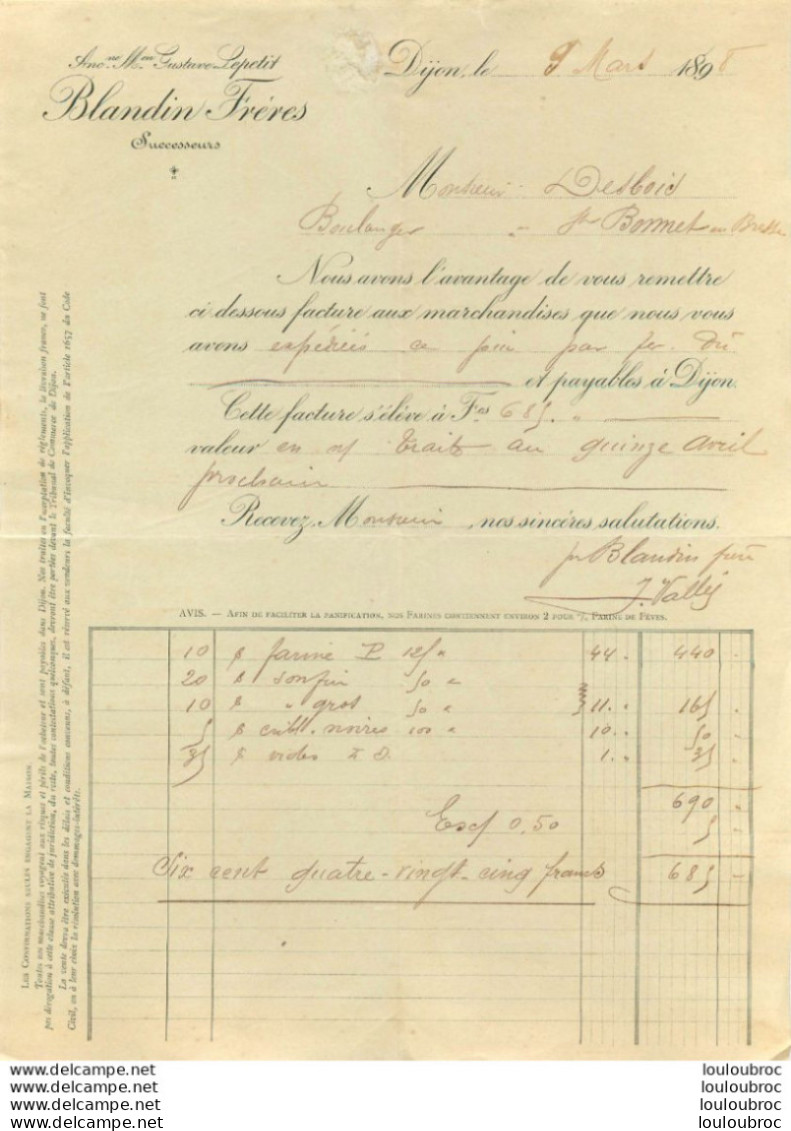 Anc.ne M.on Gustave Lepetit
Blandin Frères
Successeurs
Dijon, le 9 Mars 1898
Monsieur Desbois
Boulanger " St Bonnet en Bresse
Nous avons l'avantage de vous remettre
ci dessous facture aux marchandises que nous vous
avons expédiées ce jour par fer. Dû
et payables à Dijon.
Cette facture s'élève à F.es 685. "
valeur en n/ traite au quinze avril
prochain
Recevez, Monsieur, nos sincères salutations.
pr Blandin frères
J. Vallé
AVIS. — AFIN DE FACILITER LA PANIFICATION, NOS FARINES CONTIENNENT ENVIRON 2 POUR %, FARINE DE FÈVES.
10 farine P 125 " 44 " 440 "
20 son fin 50 "
10 " gros 50 " 11 " 165 "
5 noires 100 " 10 " 50 "
35 vides 1 " 35
690 "
Escte 0.50 5 "
Six cent quatre-vingt-cinq francs 685 "
LES CONFIRMATIONS SEULES ENGAGENT LA MAISON.
Toutes nos marchandises voyagent aux risques et périls de l'acheteur et sont payables dans Dijon. Nos traites ou l'acceptation de règlements, la livraison franco, ne font
pas dérogation à cette clause attributive de juridiction, du reste, toutes contestations quelconques, devront être portées devant le Tribunal de Commerce de Dijon.
La vente devra être exécutée dans les délais et conditions convenus, à défaut, il est réservé aux vendeurs la faculté d'invoquer l'application de l'article 1657 du Code
Civil, ou à leur choix la résolution avec dommages-intérêts.
www.delcampe.net louloubroc
www.delcampe.net louloubroc
www.delcampe.net louloubroc
www.delcampe.net louloubroc